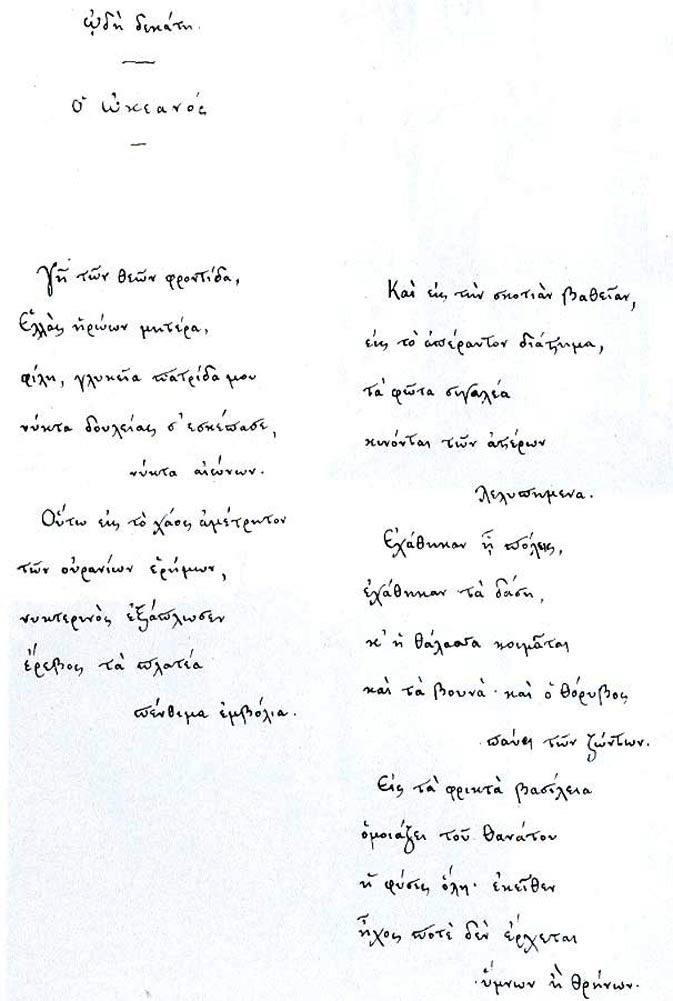 ᾠδὴ δεκάτη.
Ὁ ὠκεανός
Γῆ τῶν θεῶν φροντίδα,
Ἑλλὰς ἡρώων μητέρα,
φίλη, γλυκεῖα πατρίδα μου
νύκτα δουλείας σ' ἐσκέπασε,
νύκτα αἰώνων.
Οὕτω εἰς τὸ χάος ἀμέτρητον
τῶν οὐρανίων ἐρήμων,
νυκτερινὸς ἐξάπλωσεν
ἔρεβος τὰ πλατέα
πένθιμα ἐμβόλια.
Καὶ εἰς τὴν σκοτιὰν βαθεῖαν,
εἰς τὸ ἀπέραντον διάστημα,
τὰ φῶτα σιγαλέα
κινόνται τῶν ἀστέρων
λελυπημένα.
Ἐχάθηκαν ᾑ πόλεις,
ἐχάθηκαν τὰ δάση,
κ' ἡ θάλασσα κοιμᾶται
καὶ τὰ βουνά· καὶ ὁ θόρυβος
παύει τῶν ζώντων.
Εἰς τὰ φρικτὰ βασίλεια
ὁμοιάζει τοῦ θανάτου
ἡ φύσις ὅλη· ἐκεῖθεν
ἦχος ποτὲ δὲν ἔρχεται
ὕμνων ἢ θρήνων.